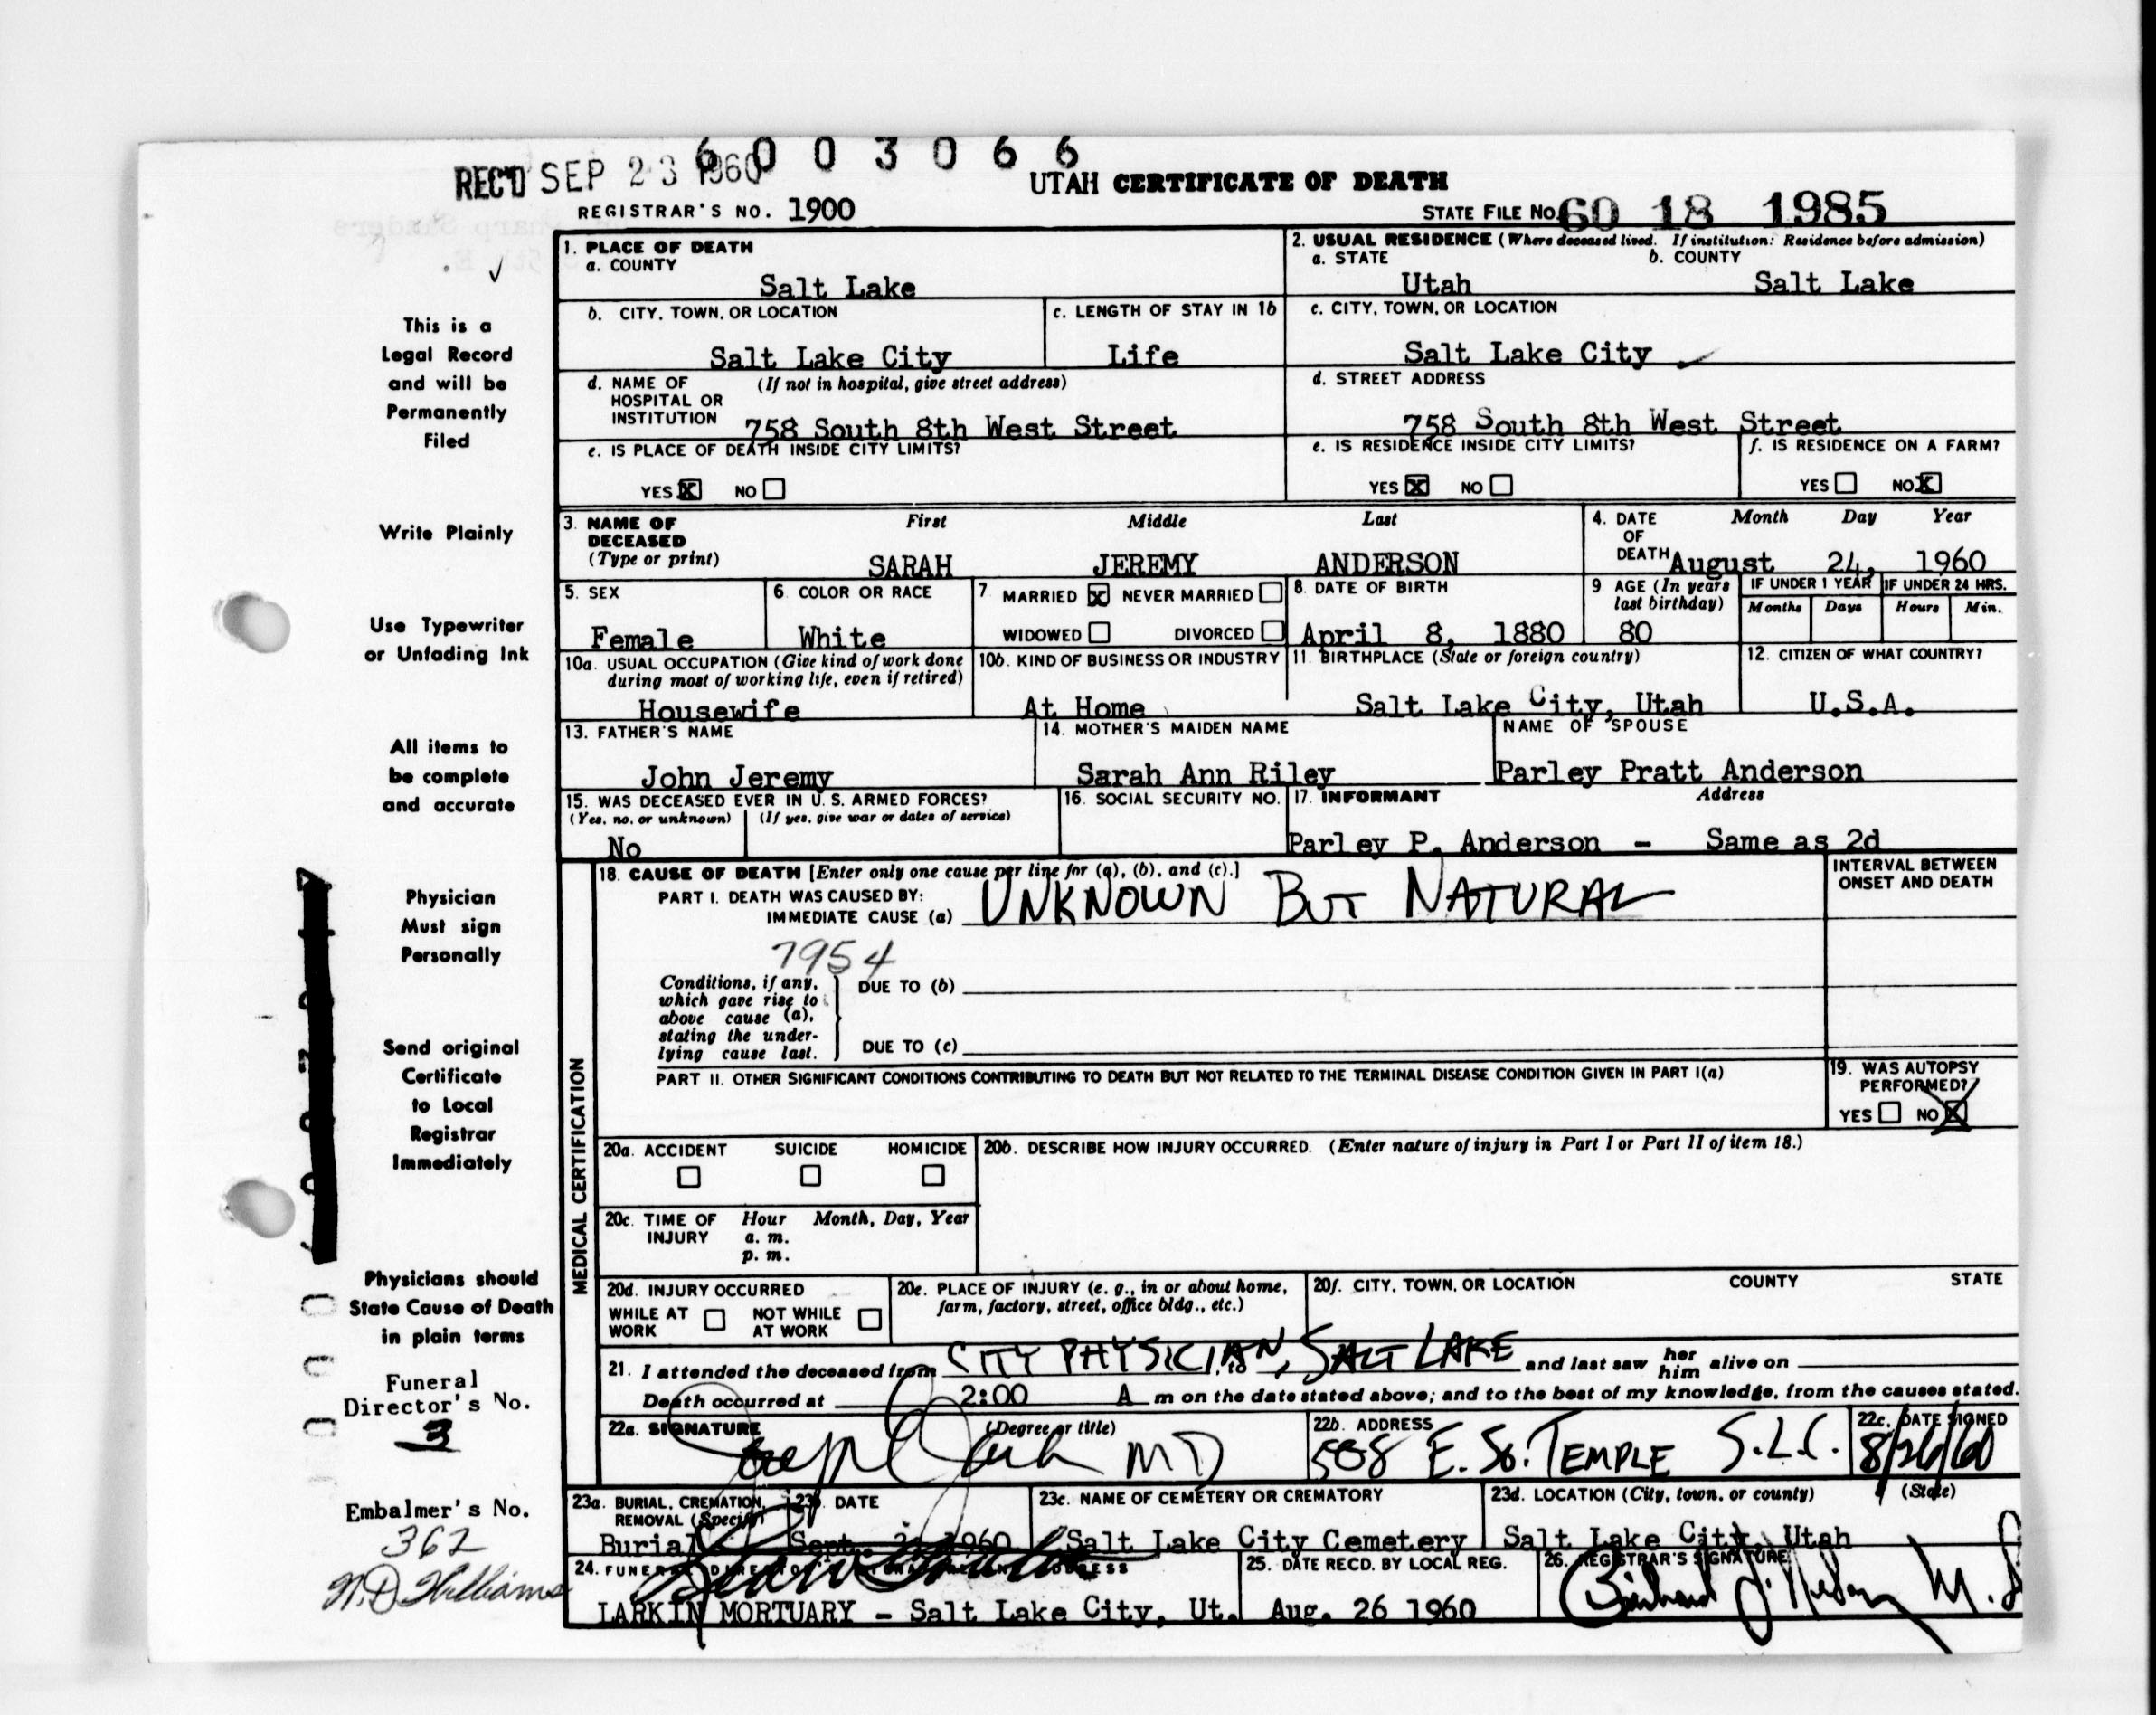 6003066
REC'D SEP 23 1960
UTAH CERTIFICATE OF DEATH
REGISTRAR'S NO. 1900
STATE FILE NO. 60 18 1985
This is a
Legal Record
and will be
Permanently
Filed
Write Plainly
Use Typewriter
or Unfading Ink
All items to
be complete
and accurate
Physician
Must sign
Personally
Send original
Certificate
to Local
Registrar
Immediately
Physicians should
State Cause of Death
in plain terms
Funeral
Director's No.
3
Embalmer's No.
362
W.D. Williams
1. PLACE OF DEATH
a. COUNTY
Salt Lake
2. USUAL RESIDENCE (Where deceased lived. If institution: Residence before admission)
a. STATE b. COUNTY
Utah Salt Lake
b. CITY, TOWN, OR LOCATION
Salt Lake City
c. LENGTH OF STAY IN 1b
Life
c. CITY, TOWN, OR LOCATION
Salt Lake City
d. NAME OF (If not in hospital, give street address)
HOSPITAL OR
INSTITUTION 758 South 8th West Street
d. STREET ADDRESS
758 South 8th West Street
e. IS PLACE OF DEATH INSIDE CITY LIMITS?
YES X NO
e. IS RESIDENCE INSIDE CITY LIMITS?
YES X NO
f. IS RESIDENCE ON A FARM?
YES NO X
3. NAME OF First Middle Last
DECEASED
(Type or print) SARAH JEREMY ANDERSON
4. DATE Month Day Year
OF
DEATH August 24, 1960
5. SEX
Female
6. COLOR OR RACE
White
7. MARRIED X NEVER MARRIED
WIDOWED DIVORCED
8. DATE OF BIRTH
April 8, 1880
9 AGE (In years
last birthday)
80
IF UNDER 1 YEAR IF UNDER 24 HRS.
Months Days Hours Min.
10a. USUAL OCCUPATION (Give kind of work done
during most of working life, even if retired)
Housewife
10b. KIND OF BUSINESS OR INDUSTRY
At Home
11. BIRTHPLACE (State or foreign country)
Salt Lake City, Utah
12. CITIZEN OF WHAT COUNTRY?
U.S.A.
13. FATHER'S NAME
John Jeremy
14. MOTHER'S MAIDEN NAME
Sarah Ann Riley
NAME OF SPOUSE
Parley Pratt Anderson
15. WAS DECEASED EVER IN U. S. ARMED FORCES?
(Yes, no, or unknown) (If yes, give war or dates of service)
No
16. SOCIAL SECURITY NO.
17. INFORMANT Address
Parley P. Anderson - Same as 2d
MEDICAL CERTIFICATION
18. CAUSE OF DEATH [Enter only one cause per line for (a), (b), and (c).]
PART I. DEATH WAS CAUSED BY:
IMMEDIATE CAUSE (a) UNKNOWN BUT NATURAL
INTERVAL BETWEEN
ONSET AND DEATH
7954
Conditions, if any,
which gave rise to
above cause (a),
stating the under-
lying cause last.
DUE TO (b)
DUE TO (c)
PART II. OTHER SIGNIFICANT CONDITIONS CONTRIBUTING TO DEATH BUT NOT RELATED TO THE TERMINAL DISEASE CONDITION GIVEN IN PART I(a)
19. WAS AUTOPSY
PERFORMED?
YES NO X
20a. ACCIDENT SUICIDE HOMICIDE
20b. DESCRIBE HOW INJURY OCCURRED. (Enter nature of injury in Part I or Part II of item 18.)
20c. TIME OF Hour Month, Day, Year
INJURY a. m.
p. m.
20d. INJURY OCCURRED
WHILE AT NOT WHILE
WORK AT WORK
20e. PLACE OF INJURY (e. g., in or about home,
farm, factory, street, office bldg., etc.)
20f. CITY, TOWN, OR LOCATION COUNTY STATE
21. I attended the deceased from CITY PHYSICIAN, to SALT LAKE and last saw her him alive on
Death occurred at 2:00 A m on the date stated above; and to the best of my knowledge, from the causes stated.
22a. SIGNATURE (Degree or title)
MD
22b. ADDRESS
508 E. So. TEMPLE S.L.C.
22c. DATE SIGNED
8/26/60
23a. BURIAL, CREMATION,
REMOVAL (Specify)
Burial
23b. DATE
Sept. 1960
23c. NAME OF CEMETERY OR CREMATORY
Salt Lake City Cemetery
23d. LOCATION (City, town, or county) (State)
Salt Lake City, Utah
24. FUNERAL DIRECTOR ADDRESS
LARKIN MORTUARY - Salt Lake City, Ut.
25. DATE RECD. BY LOCAL REG.
Aug. 26 1960
26. REGISTRAR'S SIGNATURE